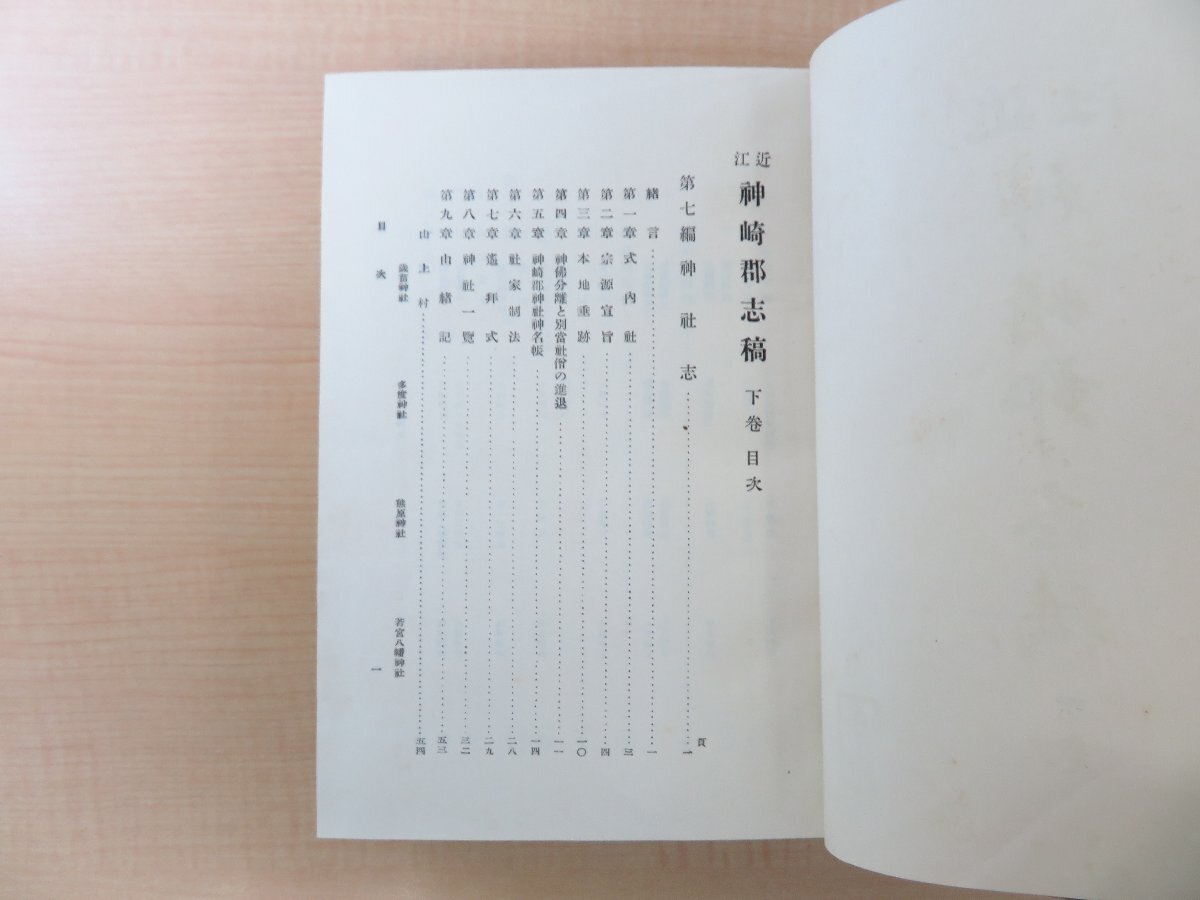 近江 神崎郡志稿 下卷 目次
頁
第七編 神社志……一
緒言……一
第一章 式內社……三
第二章 宗源宣旨……四
第三章 本地垂跡……一〇
第四章 神佛分離と別當社僧の進退……一一
第五章 神崎郡神社神名帳……一四
第六章 社家制法……二八
第七章 遙拜式……二九
第八章 神社一覽……三二
第九章 由緒記……五三
山上村……五四
歲苗神社 多度神社 熊原神社 若宮八幡神社
目次 一